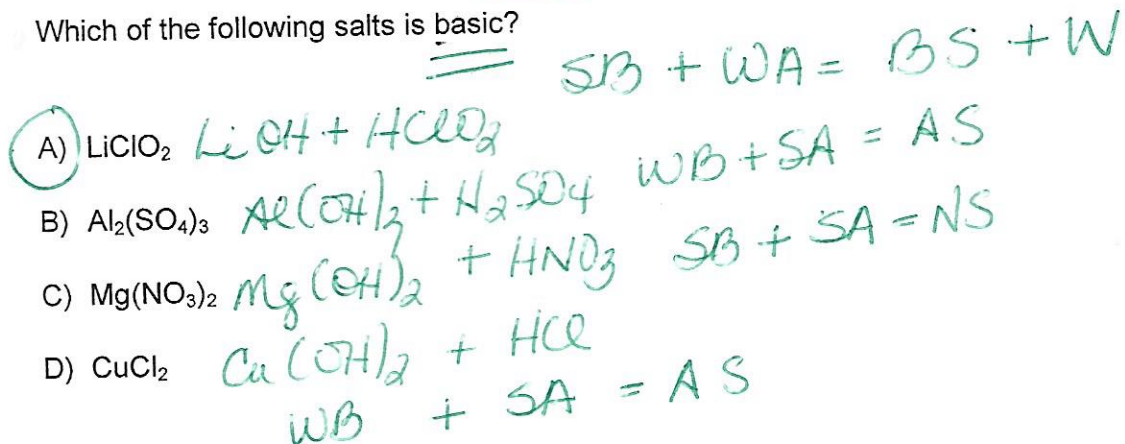 Which of the following salts is basic?
SB + WA = BS + W
A) LiClO₂ LiOH + HClO₂
WB + SA = AS
B) Al₂(SO₄)₃ Al(OH)₃ + H₂SO₄
SB + SA = NS
C) Mg(NO₃)₂ Mg(OH)₂ + HNO₃
D) CuCl₂ Cu(OH)₂ + HCl
WB + SA = AS